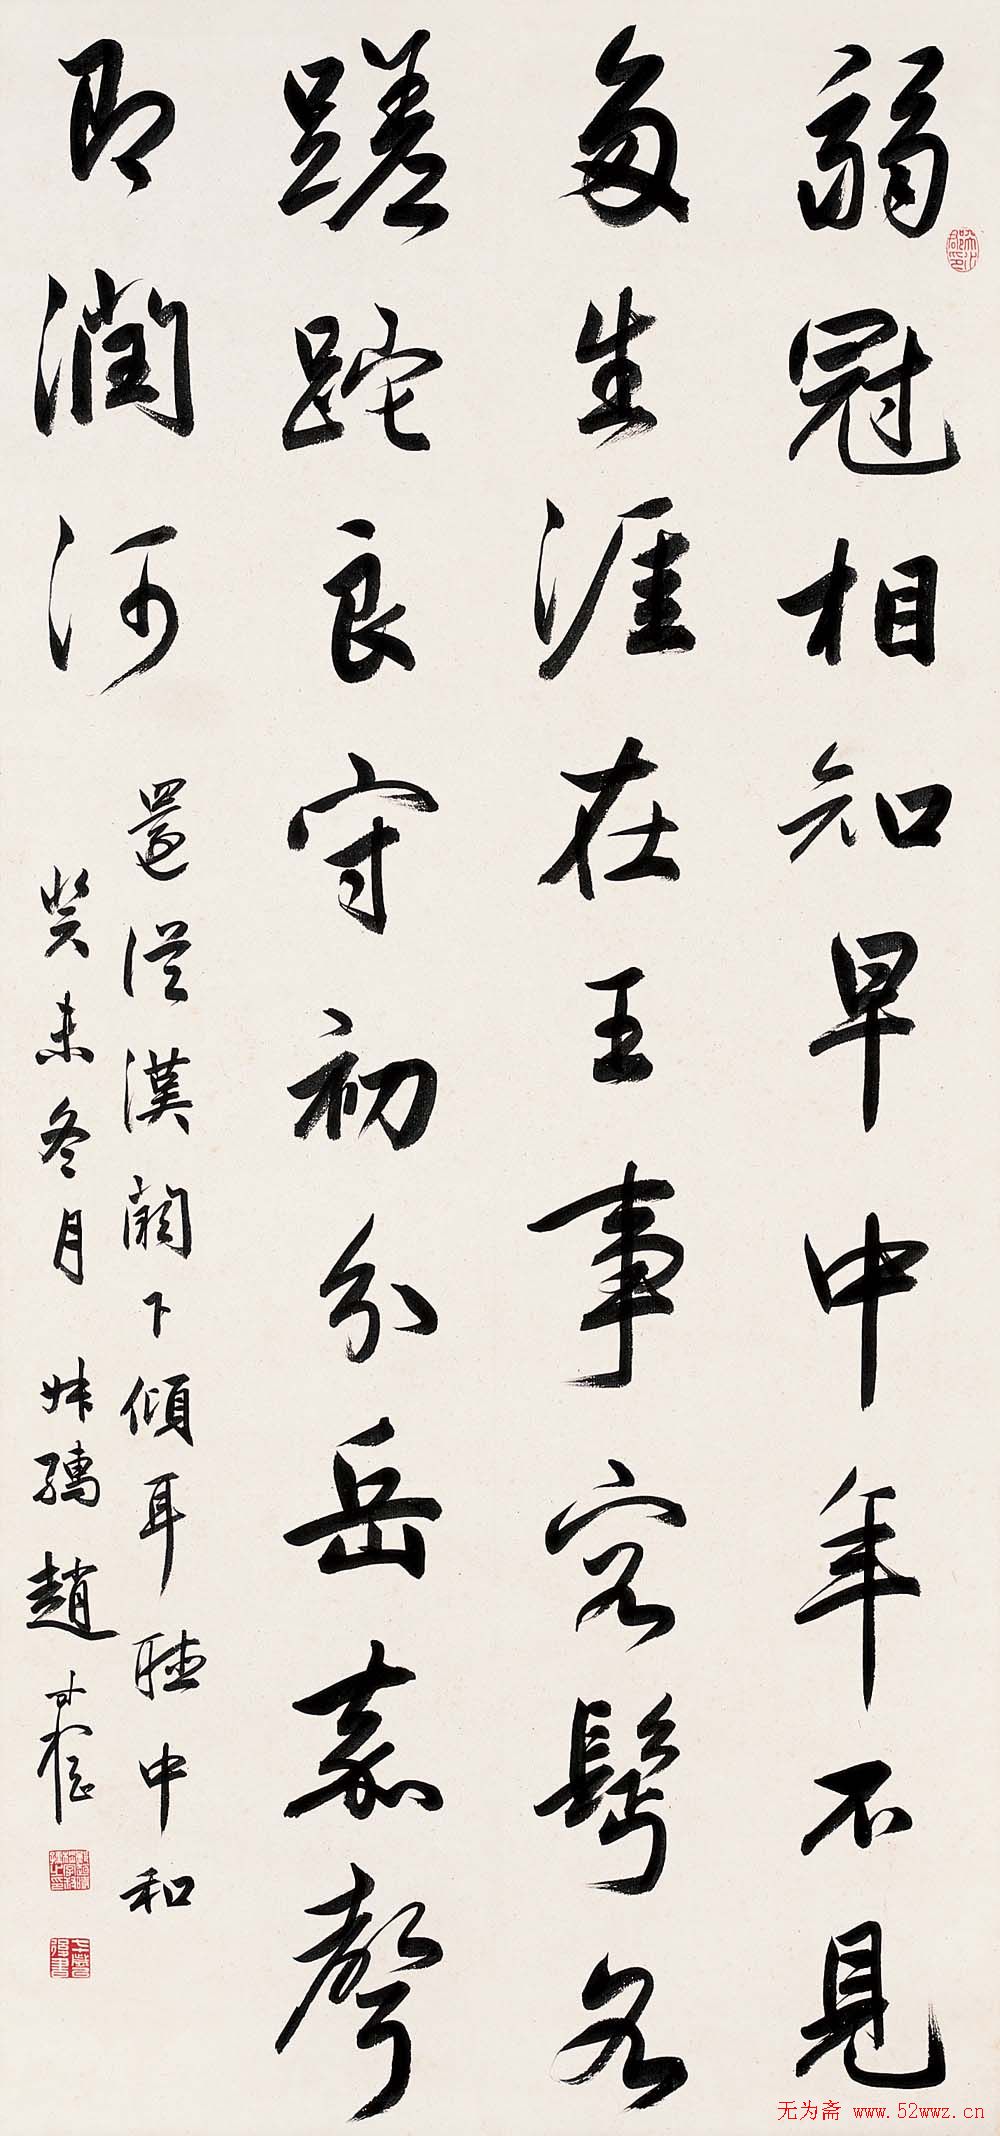 弱冠相知早中年不見
多生涯在王事容鬢各
蹉跎良守初分岳嘉聲
即潤河
還從漢闕下傾耳聽中和
癸未冬月 趙
无为斋 www.52wwz.cn